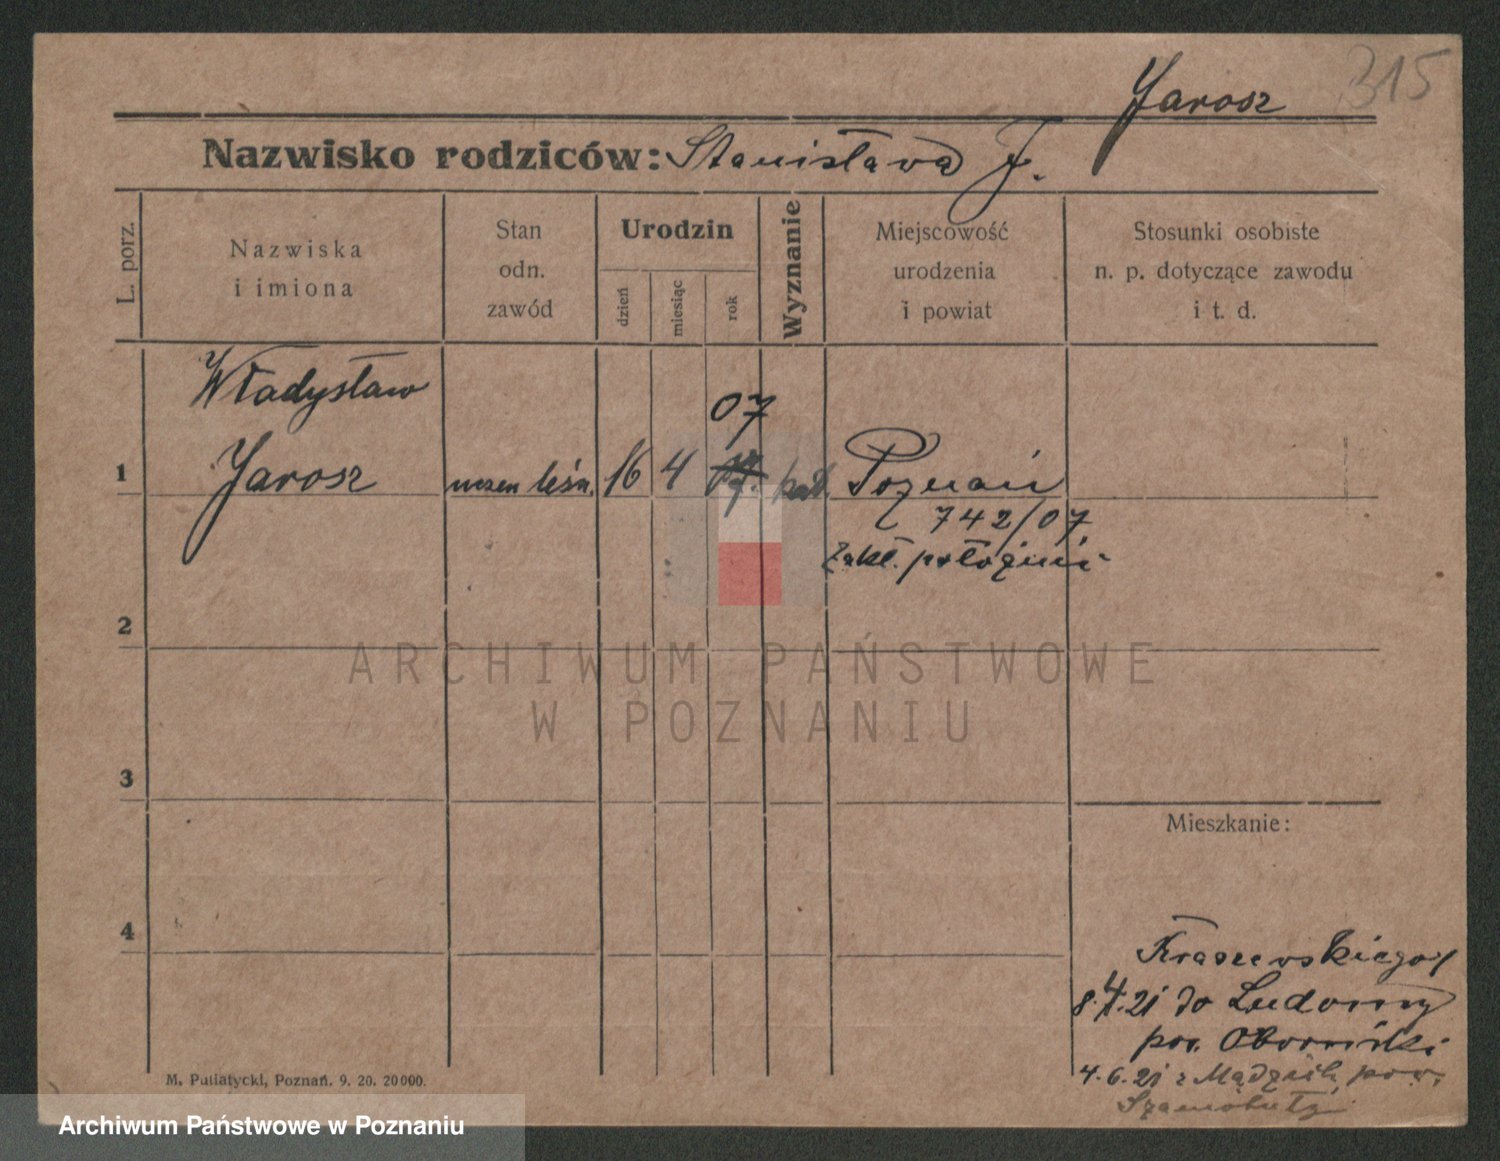 315
Jarosz
Nazwisko rodziców: Stanisława J.
L. porz.
Nazwiska
i imiona
Stan
odn.
zawód
Urodzin
dzień
miesiąc
rok
Wyznanie
Miejscowość
urodzenia
i powiat
Stosunki osobiste
n. p. dotyczące zawodu
i t. d.
Władysław
07
1 Jarosz uczen leśn. 16 4 kat. Poznań
742/07
Zakł. położnic
2
ARCHIWUM PAŃSTWOWE
W POZNANIU
3
Mieszkanie:
4
Kraszewskiego
8.4.21 do Ludomy
pow. Obornicki
4.6.21 z pow.
Szamotuły
M. Putiatycki, Poznań. 9. 20. 20000.
Archiwum Państwowe w Poznaniu